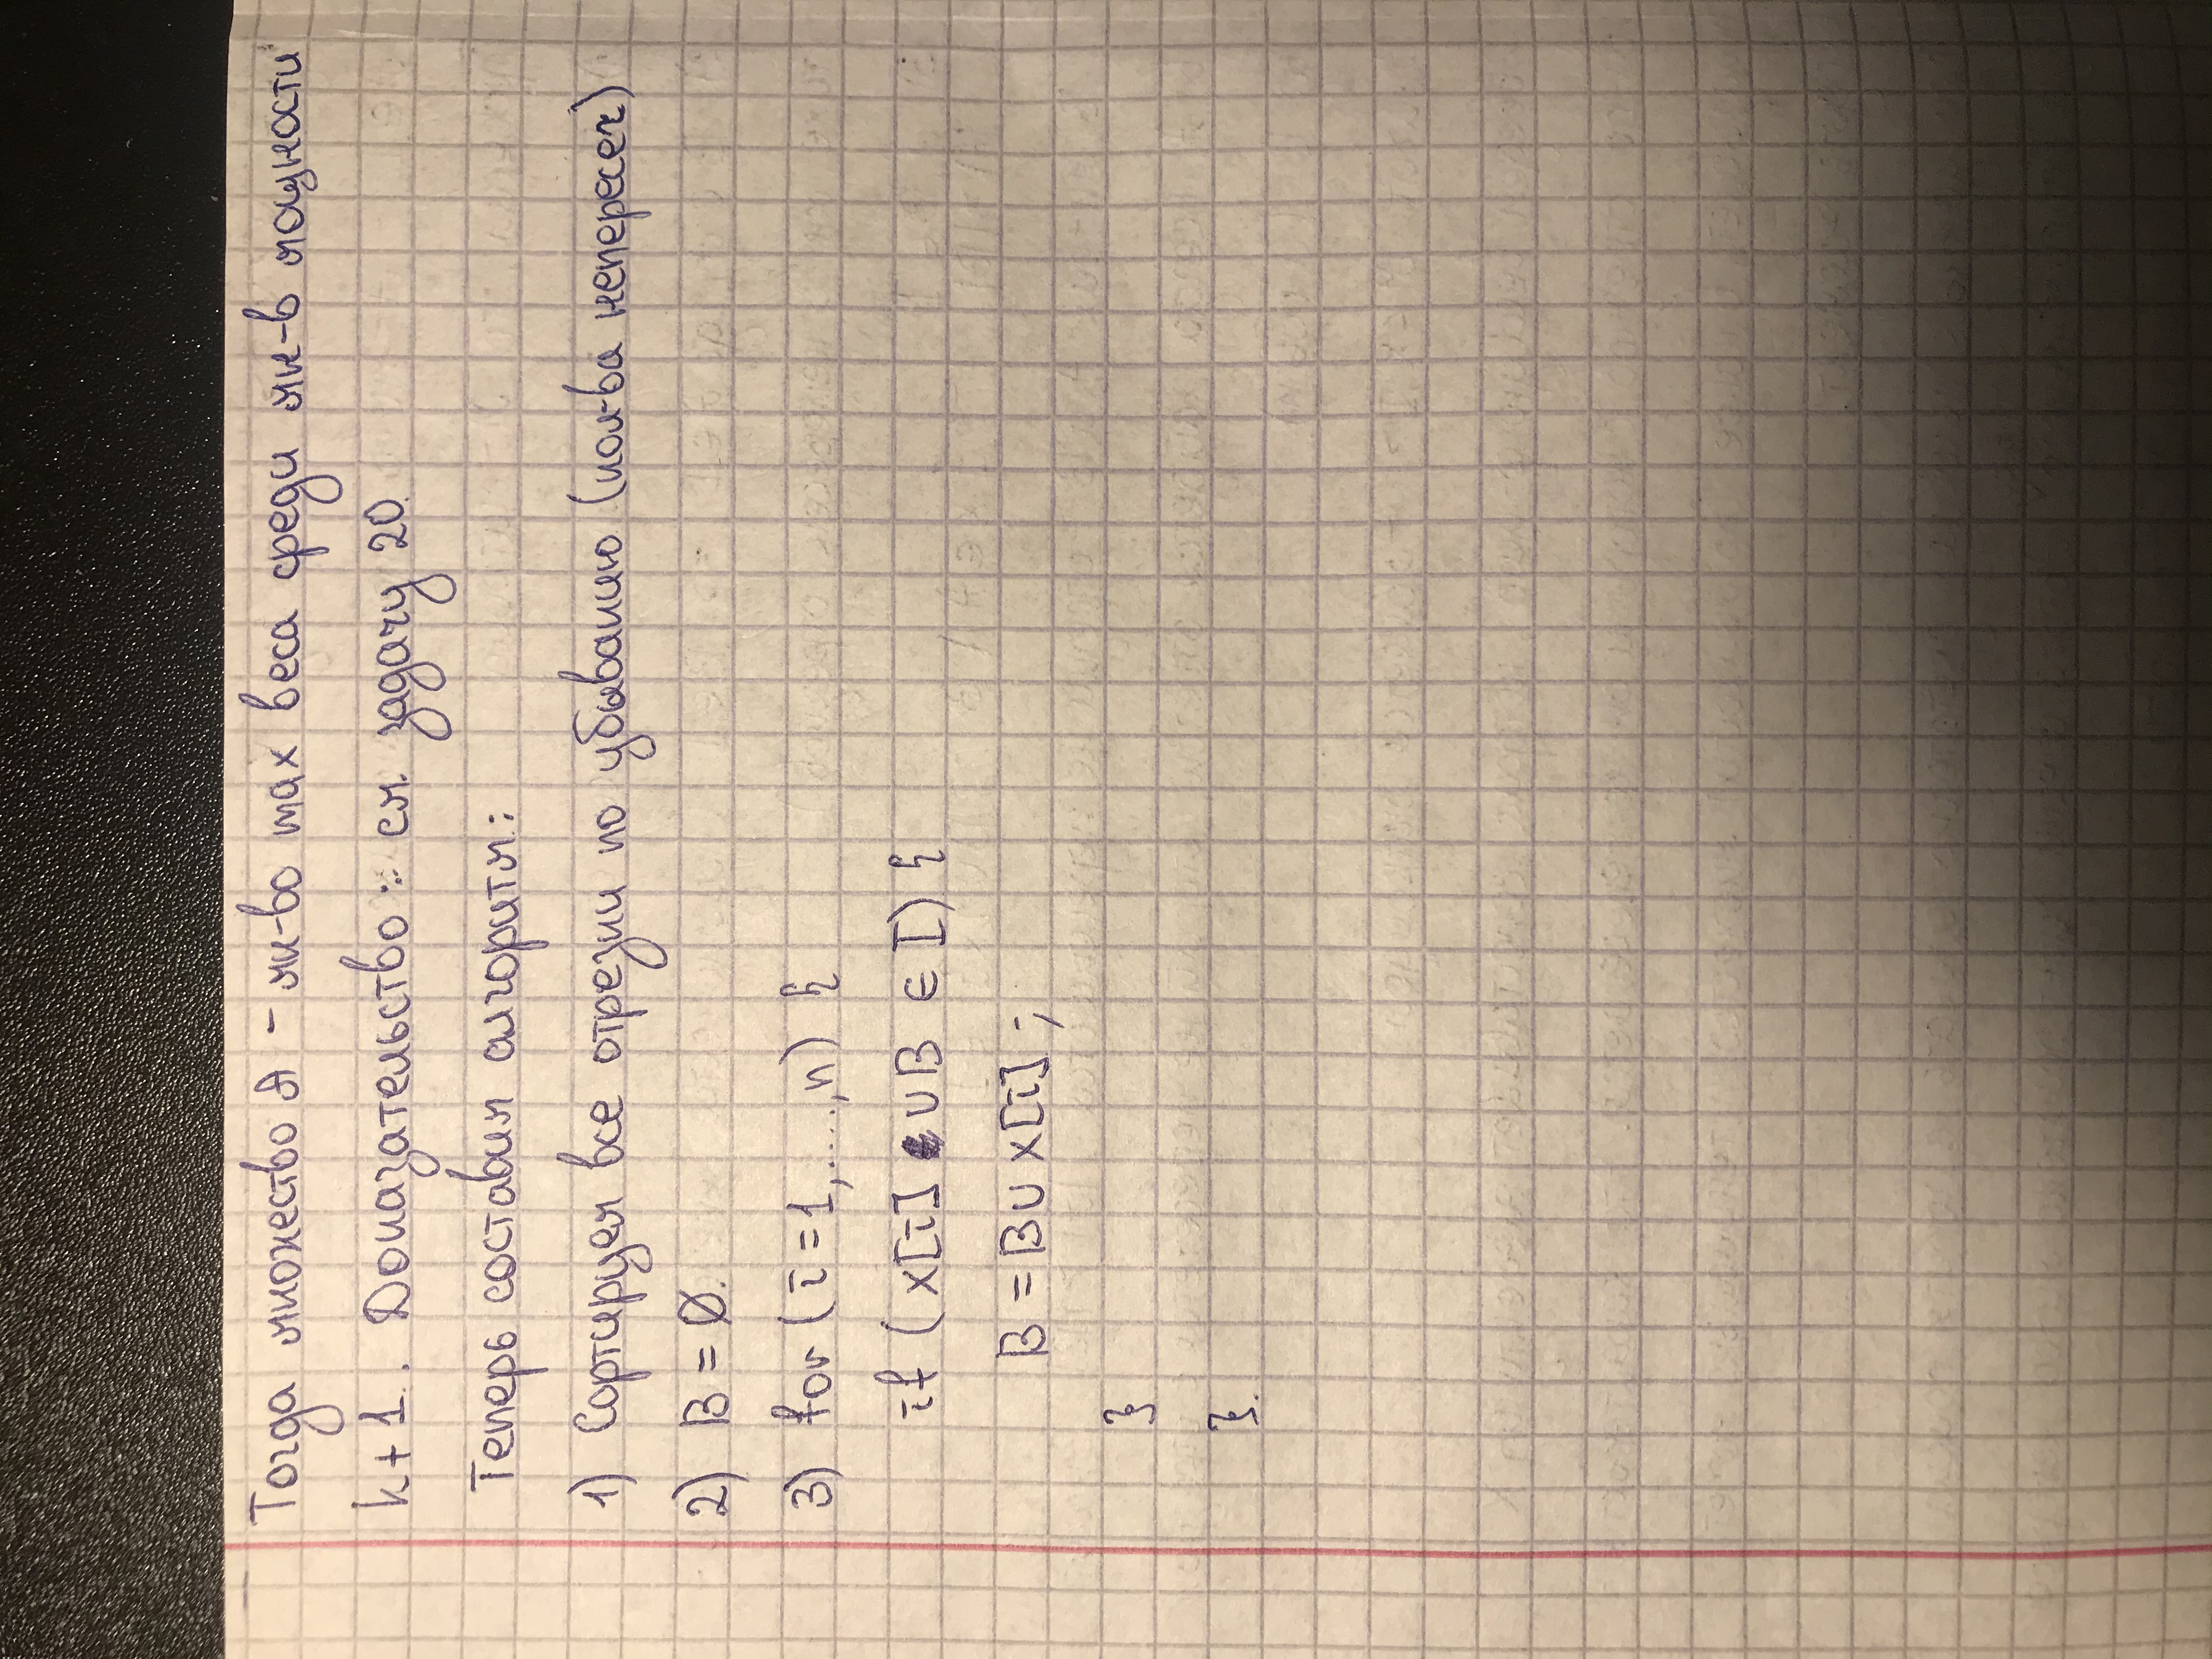 Тогда множество A - мн-во max веса среди мн-в мощности
k+1. Доказательство: см. задачу 20.
Теперь составим алгоритм:
1) Сортируем все отрезки по убыванию (кол-ва непересеч)
2) B = Ø.
3) for (i=1,....,n) {
if (x[i] ∪ B ∈ I) {
B = B ∪ x[i] ;
}
}.